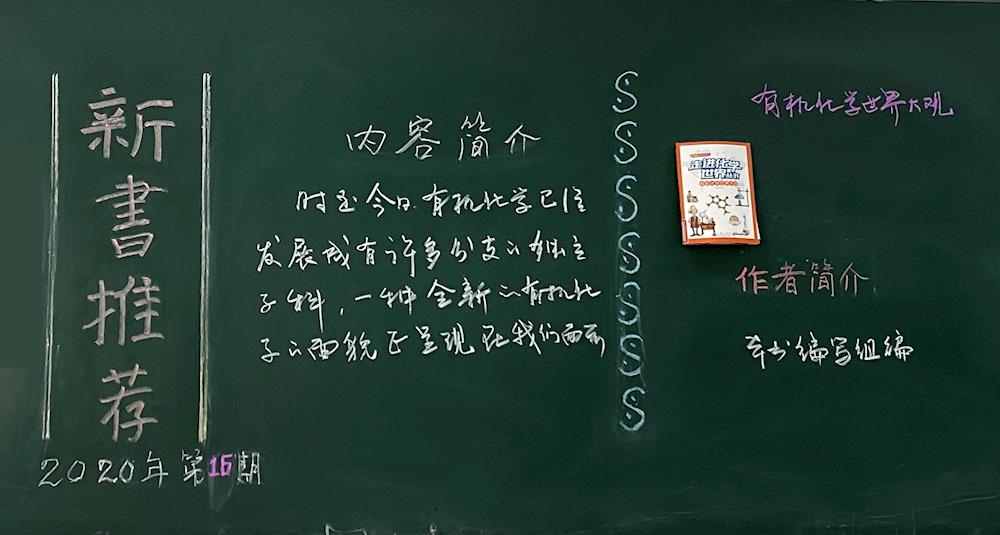 新書推荐
2020年第15期
内容简介
时至今日,有机化学已经
发展成有许多分支的独立
学科,一种全新的有机化
学的面貌正呈现在我们面前
有机化学世界大观
走进化学
世界丛书
作者简介
本书编写组编